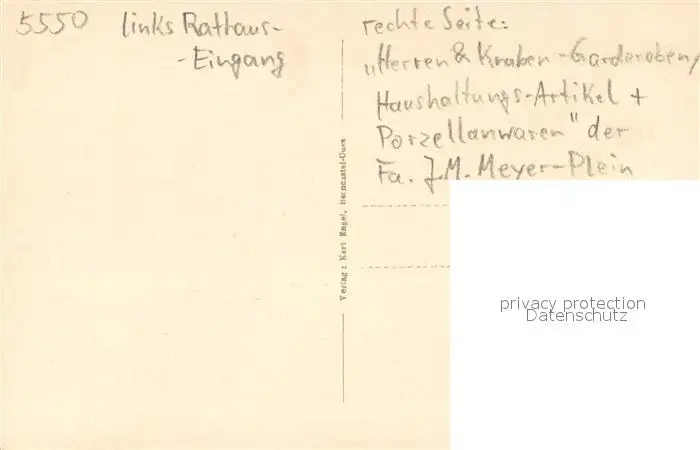 5550 links Rathaus-
-Eingang
rechte Seite:
„Herren & Knaben-Garderoben,
Haushaltungs-Artikel +
Porzellanwaren" der
Fa. J.M. Meyer-Plein
Verlag: Karl Engel, Berncastel-Cues
privacy protection
Datenschutz